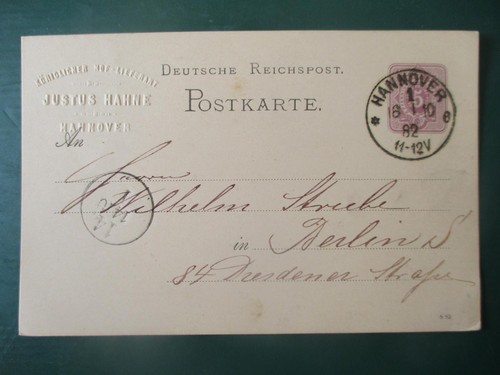 KÖNIGLICHER HOF-LIEFERANT
JUSTUS HAHNE
HANNOVER
DEUTSCHE REICHSPOST.
POSTKARTE.
HANNOVER
1
16 10
82
11-12V
An
Herrn
Wilhelm Struebe
in Berlin S
84 Dresdener Straße